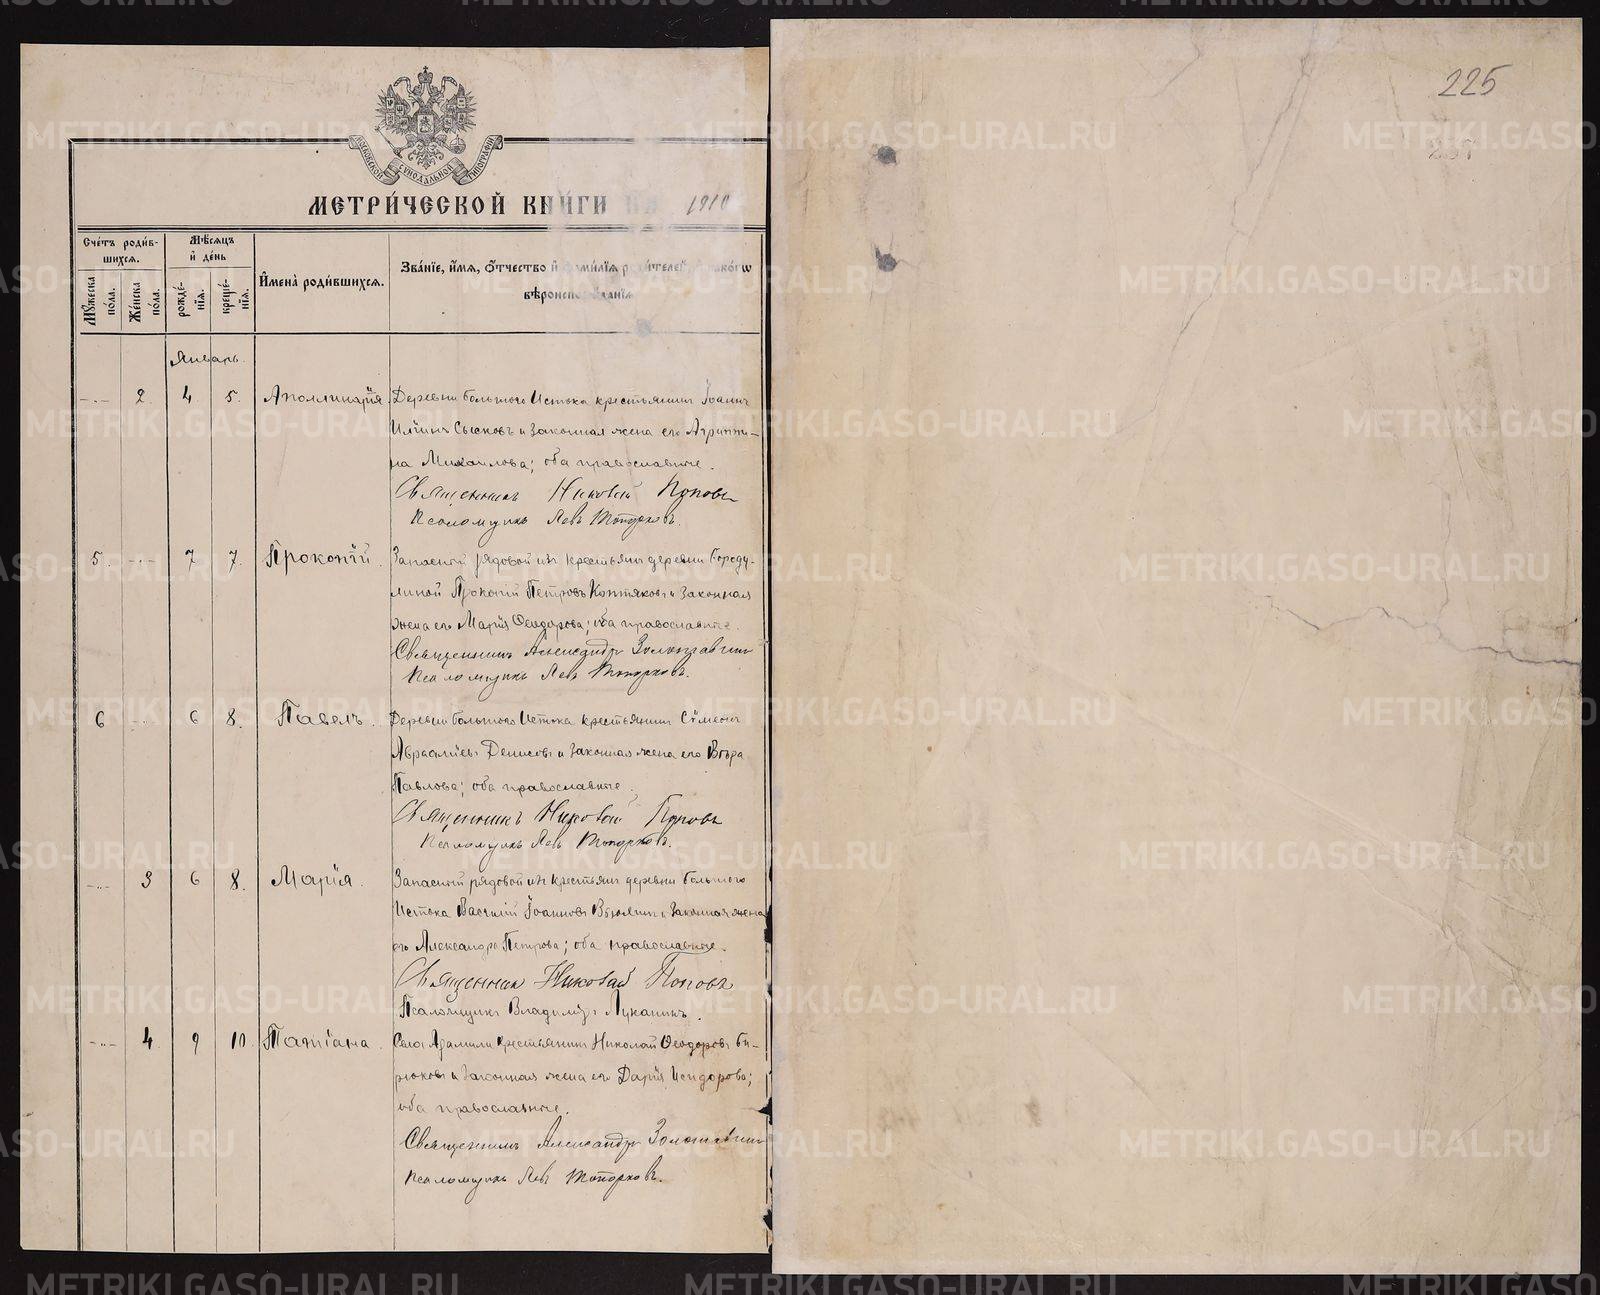 МОСКОВСКОЙ СУНОДАЛЬНОЙ ТИПОГРАФІИ
МЕТРИ́ЧЕСКОЙ КНИ́ГИ НА 1910
Сче́тъ роди́в-
шихсѧ.
Мѣ́сѧцъ
и҆ де́нь
Мꙋ́жеска по́ла.
Же́нска по́ла.
рожде́-нїѧ.
креще́-нїѧ.
И҆мена̀ роди́вшихсѧ.
Зва́нїе, и҆́мѧ, ѻ҆́тчество и҆ фами́лїѧ роди́телей, и҆ како́гѡ
вѣроисповѣ́данїѧ
Январь.
-.- 2. 4. 5. Аполлинарія. Деревни Большого Истока крестьянинъ Іоаннъ
Иліинъ Сысковъ и законная жена его Агриппи-
на Михаилова; оба православные.
Священникъ Николай Поповъ
Псаломщикъ Левъ Топорковъ.
5. -.- 7 7. Прокопій. Запасной рядовой изъ крестьянъ деревни Бороду-
линой Прокопій Петровъ Коптяковъ и законная
жена его Марія Ѳеодорова; оба православные.
Священникъ Александръ Золотавинъ
Псаломщикъ Левъ Топорковъ.
6 -.- 6 8. Павелъ. Деревни Большого Истока крестьянинъ Сѵмеонъ
Авраміевъ Денисовъ и законная жена его Вѣра
Павлова; оба православные.
Священникъ Николай Поповъ
Псаломщикъ Левъ Топорковъ.
-.- 3 6 8. Марія. Запасный рядовой изъ крестьянъ деревни Большого
Истока Василій Іоанновъ и законная жена
его Александра Петрова; оба православные.
Священникъ Николай Поповъ
Псаломщикъ Владиміръ Луканинъ.
-.- 4. 9 10. Татіана. Села Арамили крестьянинъ Николай Ѳеодоровъ Би-
рюковъ и законная жена его Дарія Исидорова;
оба православные.
Священникъ Александръ Золотавинъ
Псаломщикъ Левъ Топорковъ.
225
METRIKI.GASO-URAL.RU